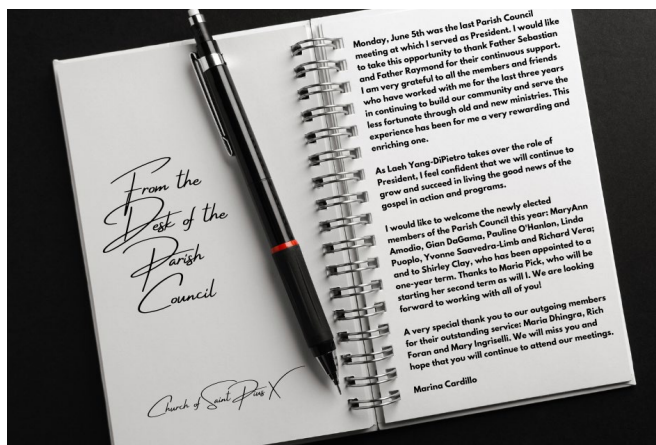 From the
Desk of the
Parish
Council
Church of Saint Pius X
Monday, June 5th was the last Parish Council
meeting at which I served as President. I would like
to take this opportunity to thank Father Sebastian
and Father Raymond for their continuous support.
I am very grateful to all the members and friends
who have worked with me for the last three years
in continuing to build our community and serve the
less fortunate through old and new ministries. This
experience has been for me a very rewarding and
enriching one.
As Laeh Yang-DiPietro takes over the role of
President, I feel confident that we will continue to
grow and succeed in living the good news of the
gospel in action and programs.
I would like to welcome the newly elected
members of the Parish Council this year: MaryAnn
Amodio, Gian DaGama, Pauline O'Hanlon, Linda
Puoplo, Yvonne Saavedra-Limb and Richard Vera;
and to Shirley Clay, who has been appointed to a
one-year term. Thanks to Maria Pick, who will be
starting her second term as will I. We are looking
forward to working with all of you!
A very special thank you to our outgoing members
for their outstanding service: Maria Dhingra, Rich
Foran and Mary Ingriselli. We will miss you and
hope that you will continue to attend our meetings.
Marina Cardillo